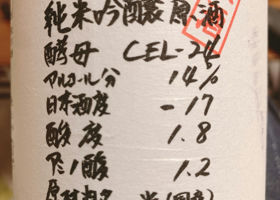 純米吟醸原酒
酵母 CEL-24
アルコール分 14%
日本酒度 -17
酸度 1.8
アミノ酸 1.2